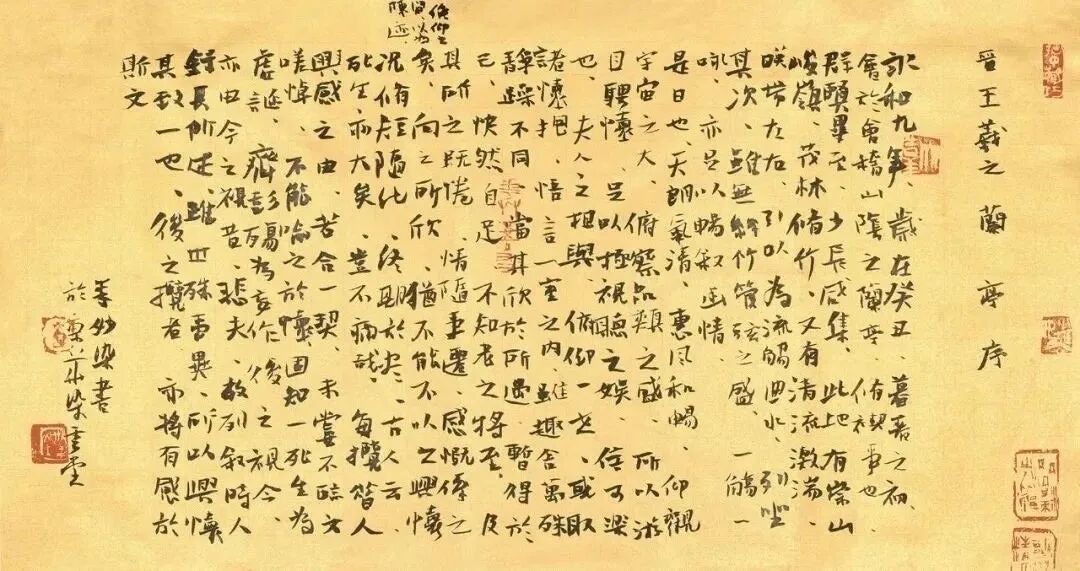 晉王羲之蘭亭序
永和九年、歲在癸丑、暮春之初、
會於會稽山陰之蘭亭、脩禊事也、
群賢畢至、少長咸集、此地有崇山
峻嶺、茂林脩竹、又有清流激湍、
暎帶左右、引以為流觴曲水、列坐
其次、雖無絲竹管弦之盛、一觴一
詠、亦足以暢叙幽情、
是日也、天朗氣清、惠風和暢、仰觀
宇宙之大、俯察品類之盛、所以游
目騁懷、足以極視聽之娛、信可樂
也、夫人之相與、俯仰一世、或取
諸懷抱、悟言一室之內、雖趣舍萬殊
靜躁不同、當其欣於所遇、暫得於
己、快然自足、不知老之將至、及
其所之既倦、情隨事遷、感慨係之
矣、向之所欣、猶不能不以之興懷
俛仰之
間以為
陳迹
況脩短隨化、終期於盡、古人云、
死生亦大矣、豈不痛哉、每攬昔人
興感之由、若合一契、未嘗不臨文
嗟悼、不能喻之於懷、固知一死生為
虛誕、齊彭殤為妄作、後之視今、
亦由今之視昔、悲夫、故列叙時人
錄其所述、雖世殊事異、所以興懷
其致一也、後之攬者、亦將有感於
斯文
書
於